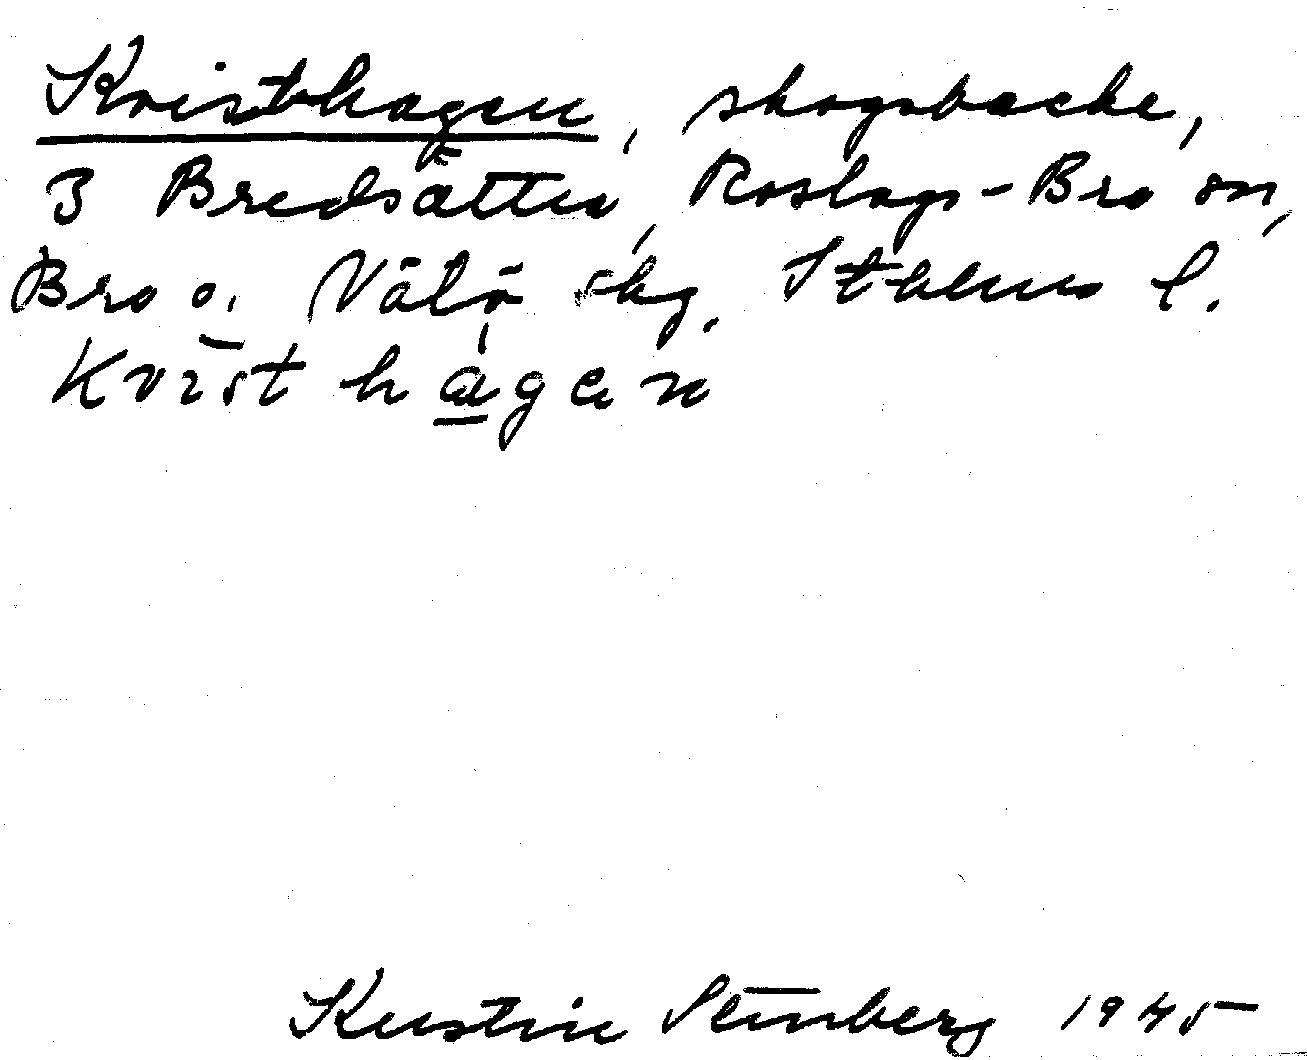 Kvisthagen, skogsbacke,
3 Bredsätter, Roslags-Bro sn,
Bro o. Vätö skg. Sthlms l.
Kvist hagen
Kerstin Stenberg 1945